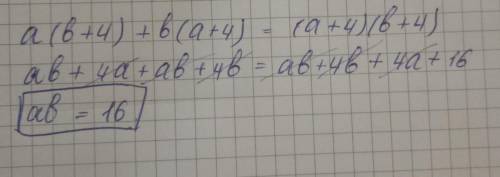 a(b+4) + b(a+4) = (a+4)(b+4)
ab + 4a + ab + 4b = ab + 4b + 4a + 16
ab = 16